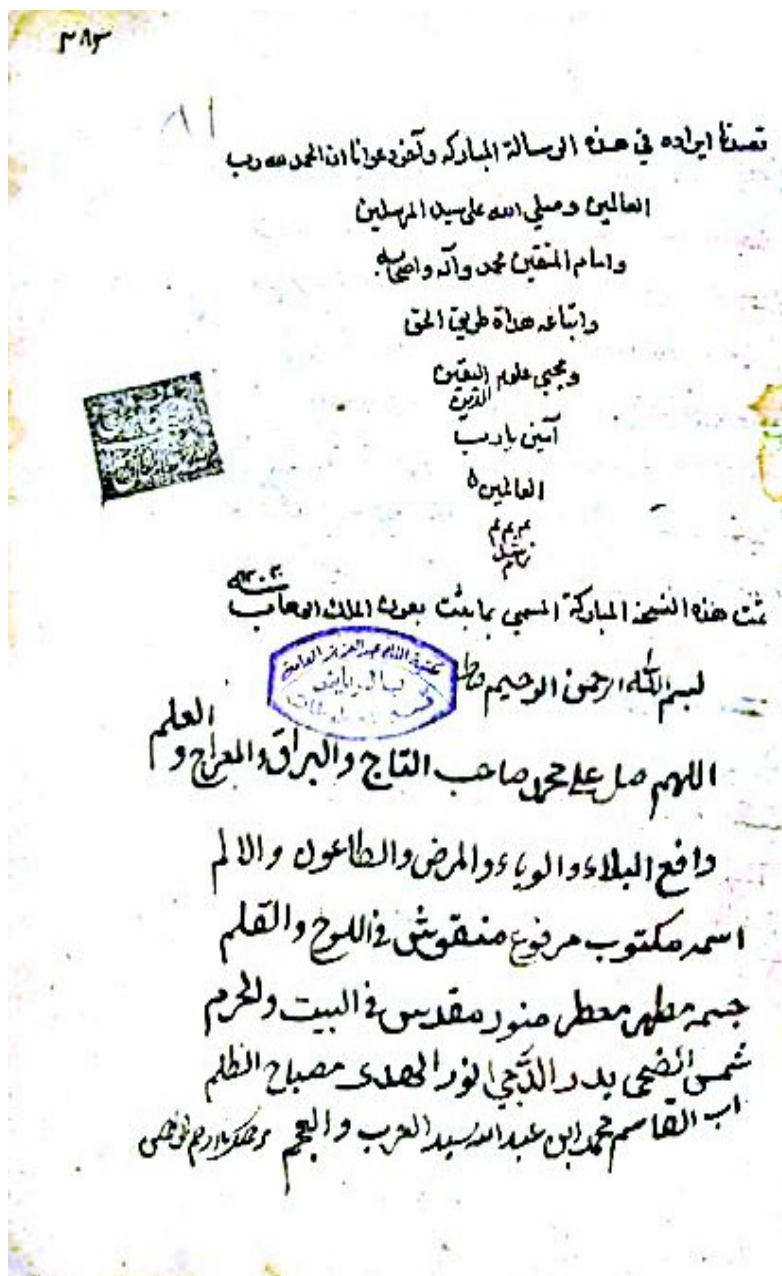 ٣٨٣
٨١
قصدنا ايراده في هذه الرسالة المباركه وآخر دعوانا ان الحمد لله رب
العالمين وصلي الله علي سيد المرسلين
وامام المتقين محمد وآله واصحابه
واتباعه هداة طريق الحق
ومحبي علوم اليقين
الدين
آمين يا رب
العالمين ٥
م م م
تمام
تمت هذه النسخة المباركة المسمي بماثبت بعون الملك الوهاب
مكتبة الملك عبد العزيز العامة
بالرياض
قسم المخطوطات
بسم الله الرحمن الرحيم
اللهم صل على محمد صاحب التاج والبراق والمعراج و العلم
دافع البلاء والوباء والمرض والطاعون والالم
اسمه مكتوب مرفوع منقوش في اللوح والقلم
جسمه مطهر معطر منور مقدس في البيت والحرم
شمس الضحى بدر الدجي نور الهدى مصباح الظلم
اب القاسم محمد ابن عبد الله سيد العرب والعجم